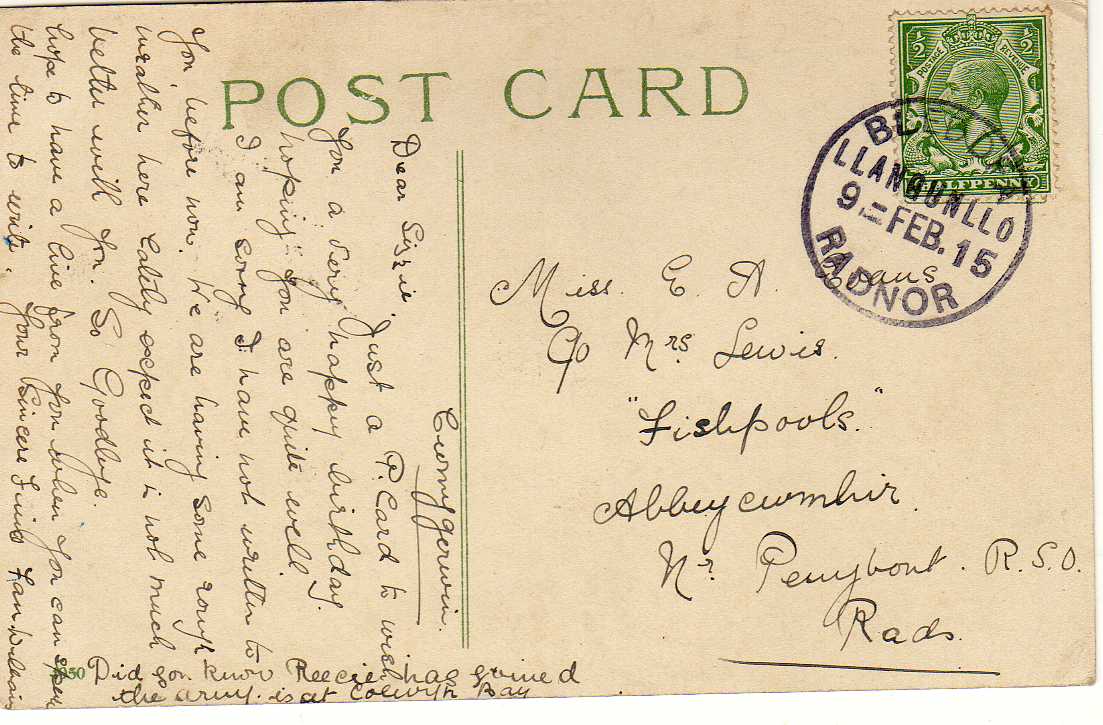 POST CARD
½ ½
POSTAGE REVENUE
HALFPENNY
LLANGUNLLO
9 FEB. 15
RADNOR
Miss. E. A. Evans
C/o Mrs. Lewis.
"Fishpools."
Abbeycwmhir.
Nr. Penybont. R.S.O.
Rads.
Cwmygerwin.
Dear Lizzie. Just a P. Card to wish
you a very happy birthday
hoping you are quite well.
I am sorry I have not written to
you before now. We are having some rough
weather here lately expect it is not much
better with you. So Goodbye.
hope to have a line from you when you can spare
the time to write. Your Sincere
Did you know Reecie has goined
the army. is at Colwyn Bay